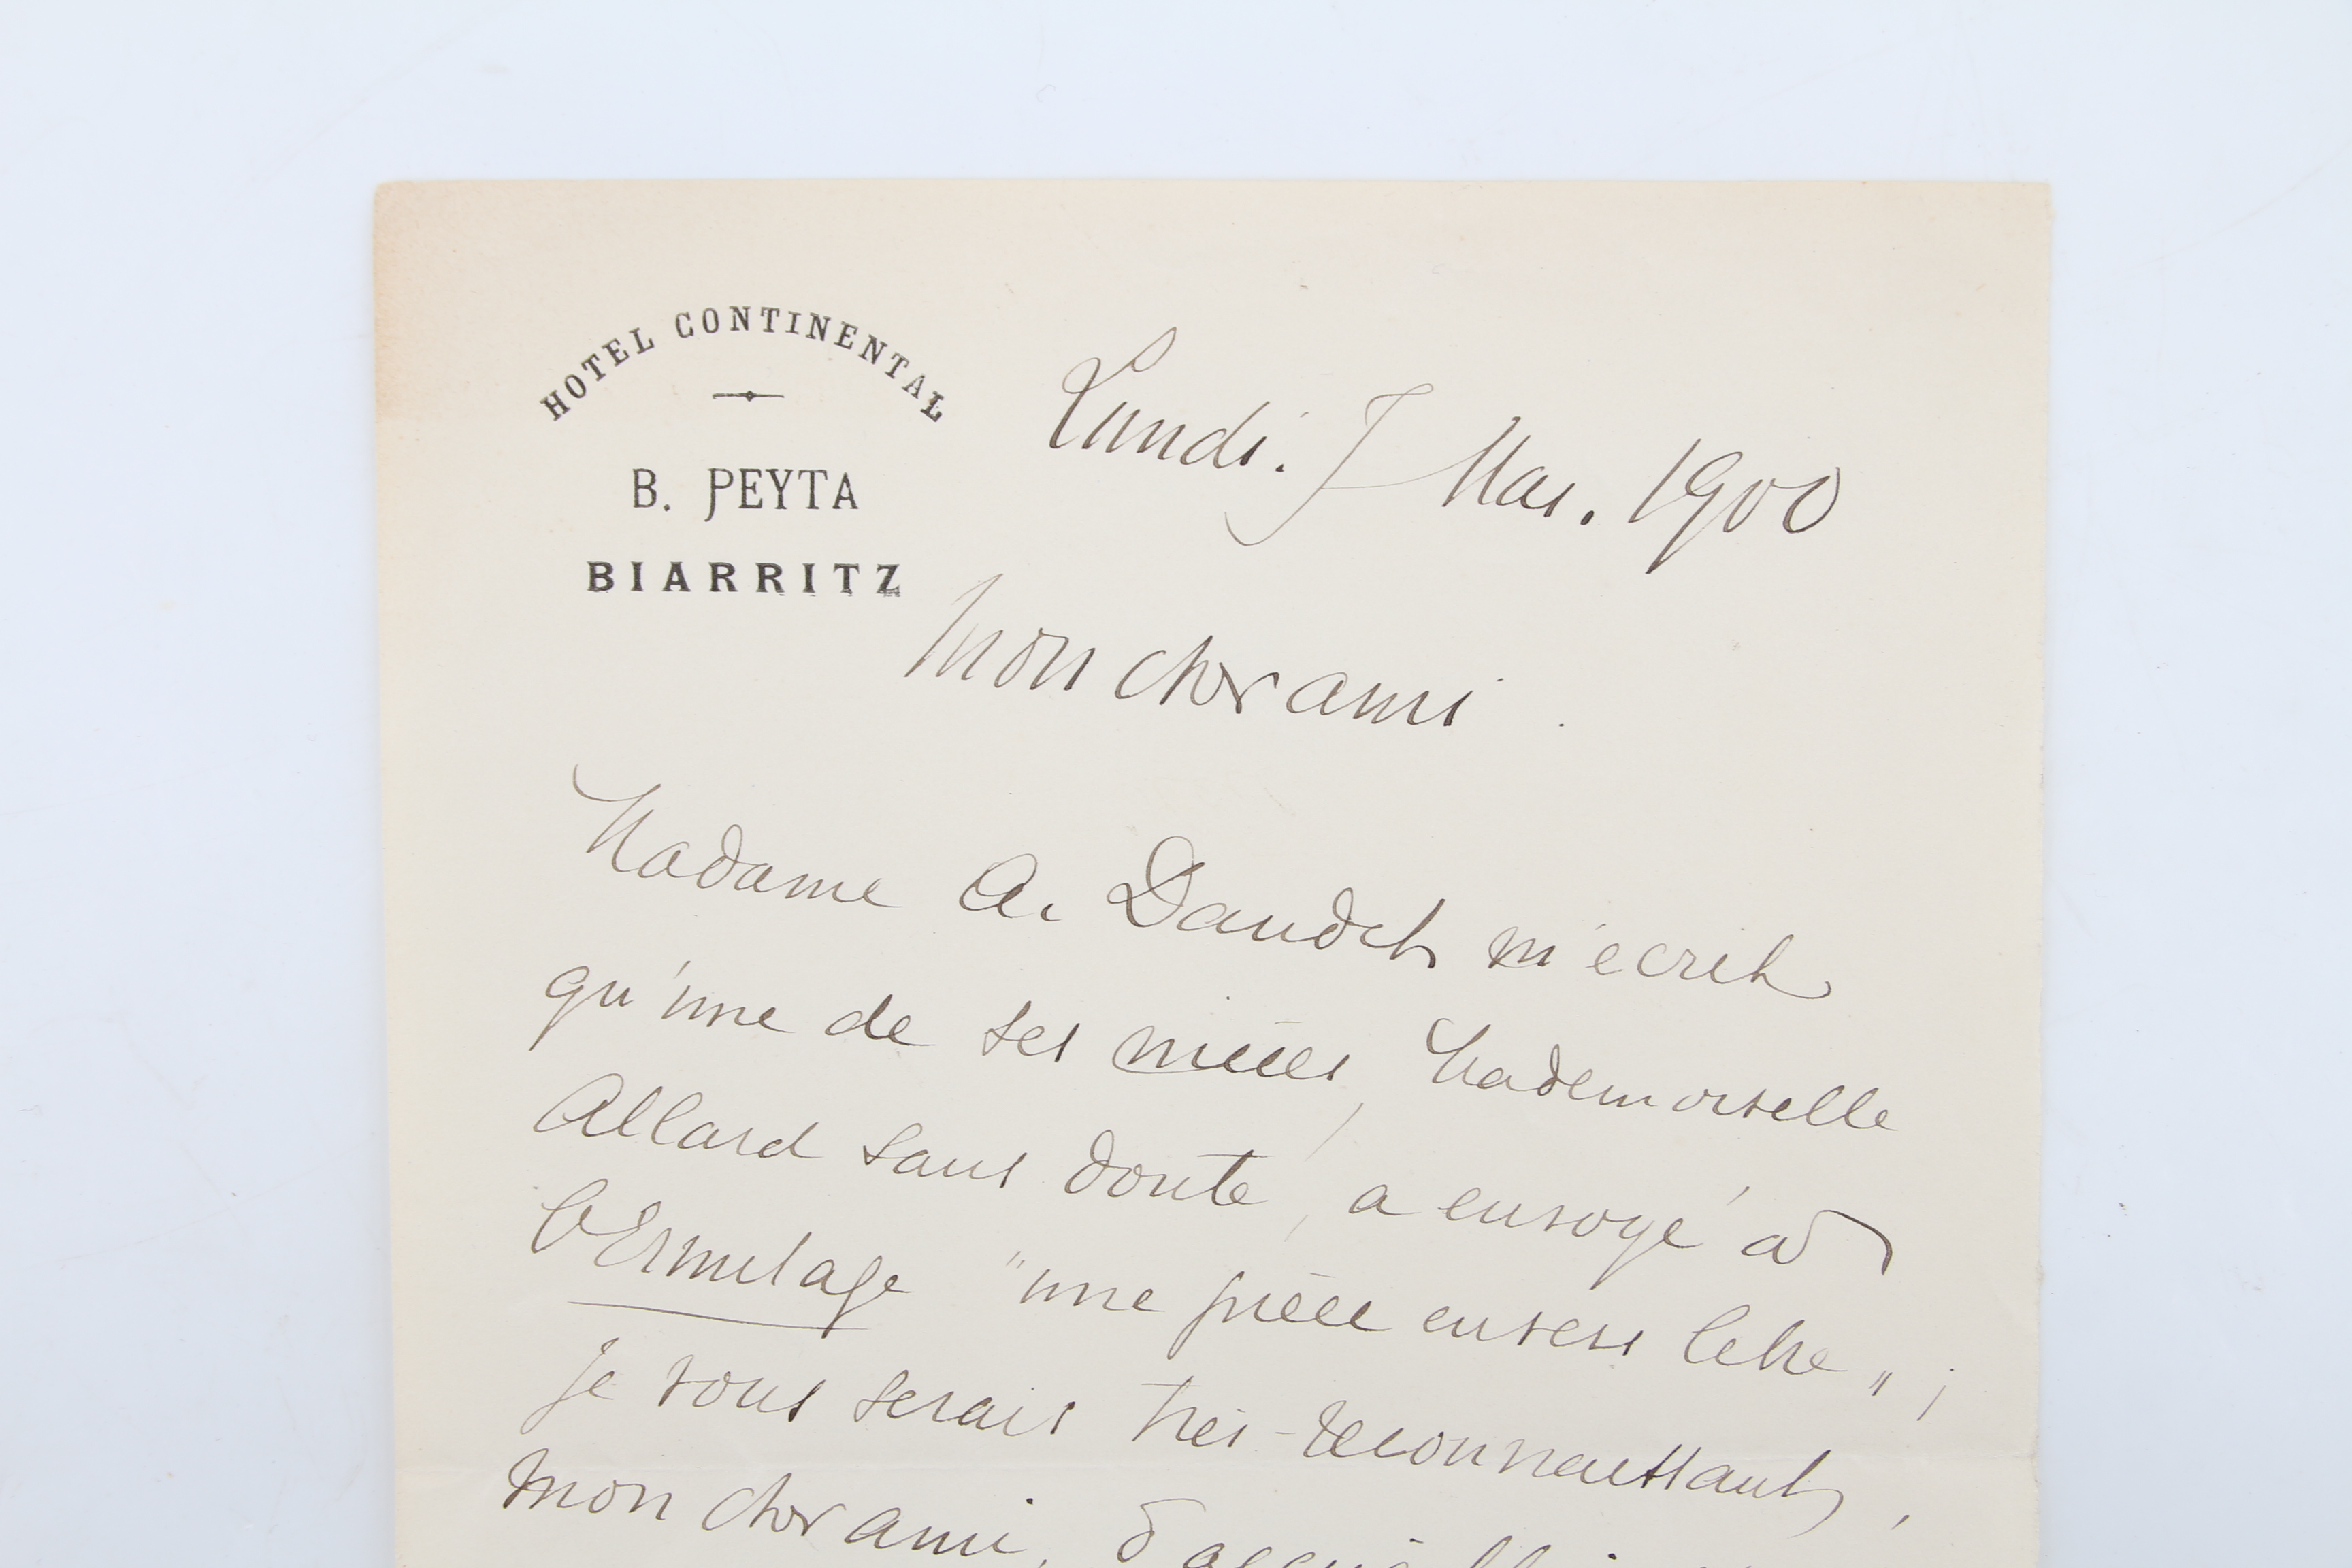 HOTEL CONTINENTAL
B. PEYTA
BIARRITZ
Lundi. 7 Mai. 1900
Mon cher ami
Madame A. Daudet m'écrit
qu'une de ses nièces, Mademoiselle
Allard sans doute, a envoyé à
l'Ermitage "une pièce en vers libre" ;
je vous serais très-reconnaissant,
mon cher ami, d'accueillir